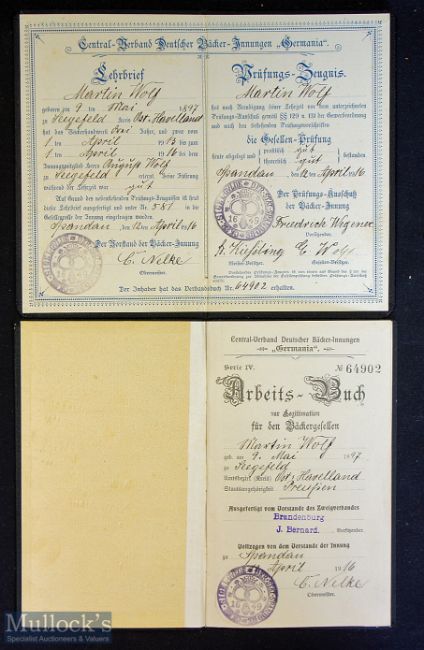 Central-Verband Deutscher Bäcker-Innungen „Germania".
Lehrbrief
Martin Wolf
geboren am 9 ten Mai 1897
zu Seegefeld Kreis Ost-Havelland
hat das Bäckerhandwerk drei Jahre, und zwar vom
1 ten April 1913 bis zum
1 ten April 1916 bei dem
Innungsmitgliede Herrn August Wolf
zu Seegefeld erlernt. Seine Führung
während der Lehrzeit war gut
Auf Grund des nebenstehenden Prüfungs-Zeugnisses ist ihm dieser
Lehrbrief ausgefertigt und unter Nr. 581 in die
Gesellenrolle der Innung eingetragen worden.
Spandau, den 12 ten April 1916
Der Vorstand der Bäcker-Innung
C. Nelke
Obermeister.
Prüfungs-Zeugnis.
Martin Wolf
hat nach Beendigung seiner Lehrzeit vor dem unterzeichneten
Prüfungs-Ausschuß gemäß §§ 129 u. 131 der Gewerbeordnung
und nach den bestehenden Prüfungsvorschriften
die Gesellen-Prüfung
praktisch gut
heute abgelegt und theoretisch gut bestanden
Spandau, den 12 ten April 1916
Der Prüfungs-Ausschuß
der Bäcker-Innung
Friedrich Wegener
Vorsitzender.
R. Kißling E. Wolf
Meister-Beisitzer. Gesellen-Beisitzer.
Der Inhaber hat das Verbandsbuch Nr. 64902 erhalten.
Central-Verband Deutscher Bäcker-Innungen
„Germania".
Serie IV. № 64902
Arbeits-Buch
zur Legitimation
für den Bäckergesellen
Martin Wolf
geb. am 9. Mai 1897
zu Seegefeld
Amtsbezirk (Kreis) Ost-Havelland
Staatsangehörigkeit: Preußen
Ausgefertigt vom Vorstande des Zweigverbandes
Brandenburg
J. Bernard.
Vorsitzender
Vollzogen von dem Vorstande der Innung
zu Spandau
April 1916
C. Nelke
Obermeister.
1659
Mullock's
Specialist Auctioneers & Valuers